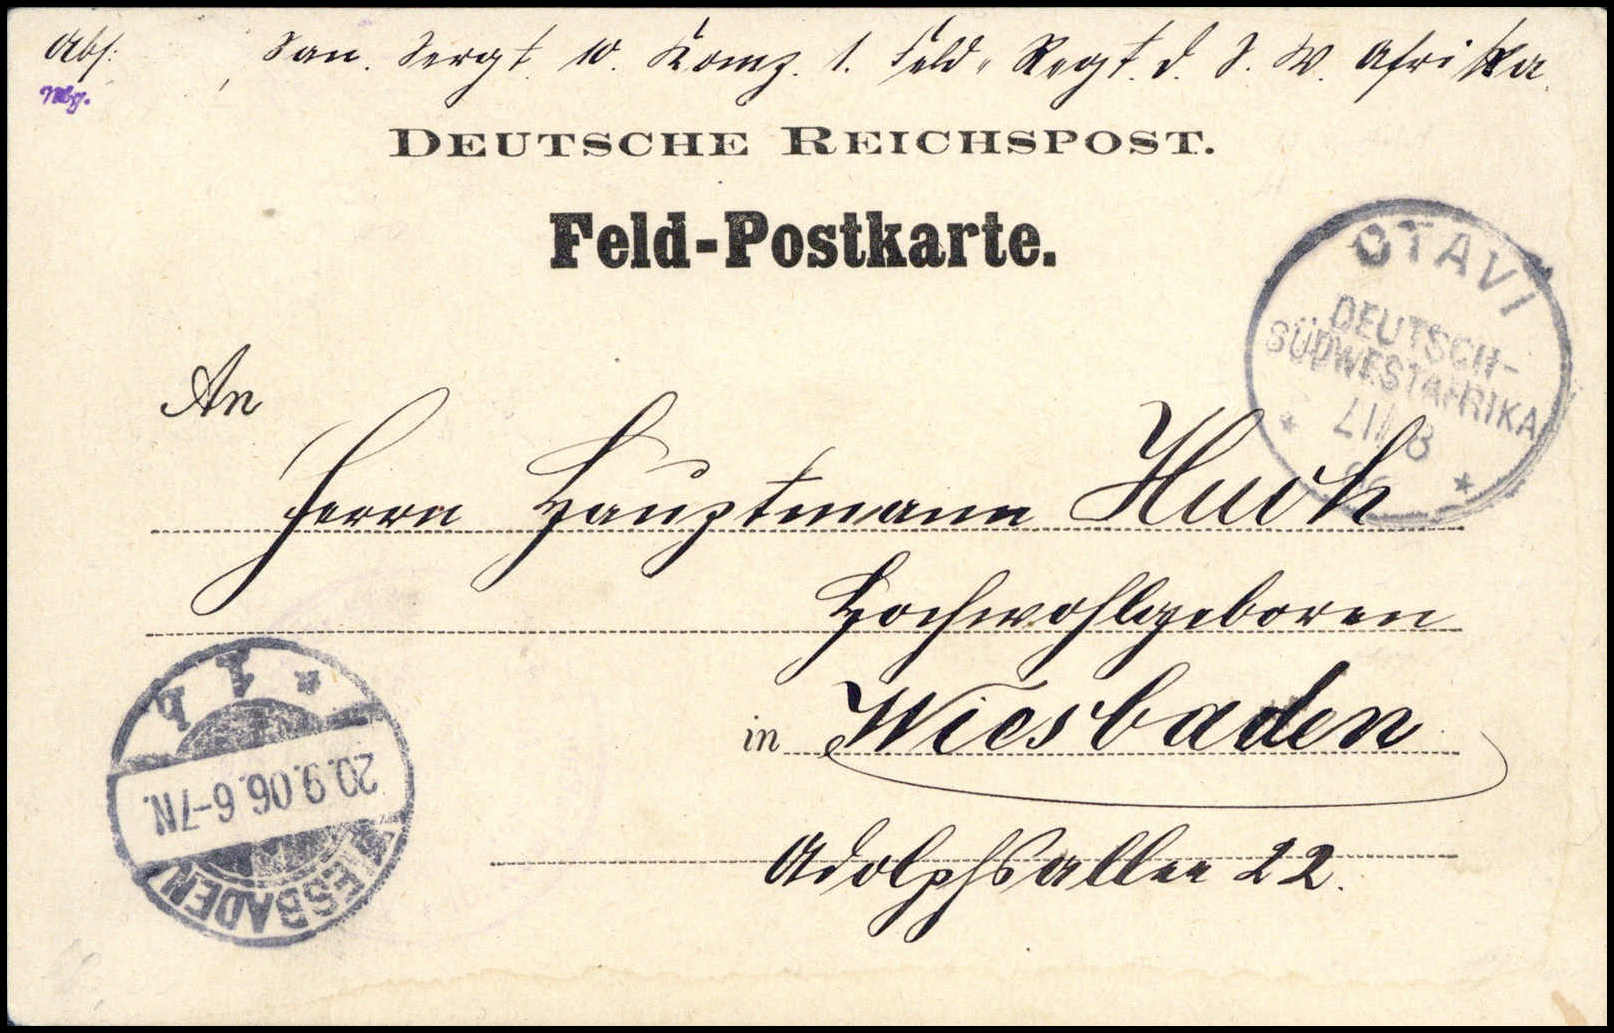 Abs: San. Sergt. 10. Komp. 1. Feld-Regt. d. S. W. Afrika.
DEUTSCHE REICHSPOST.
Feld-Postkarte.
OTAVI
DEUTSCH-
SÜDWESTAFRIKA
An
Herrn Hauptmann Huck
Hochwohlgeboren
in Wiesbaden
Adolphsallee 22.
WIESBADEN
20.9.06.6-7N.
* 1 b